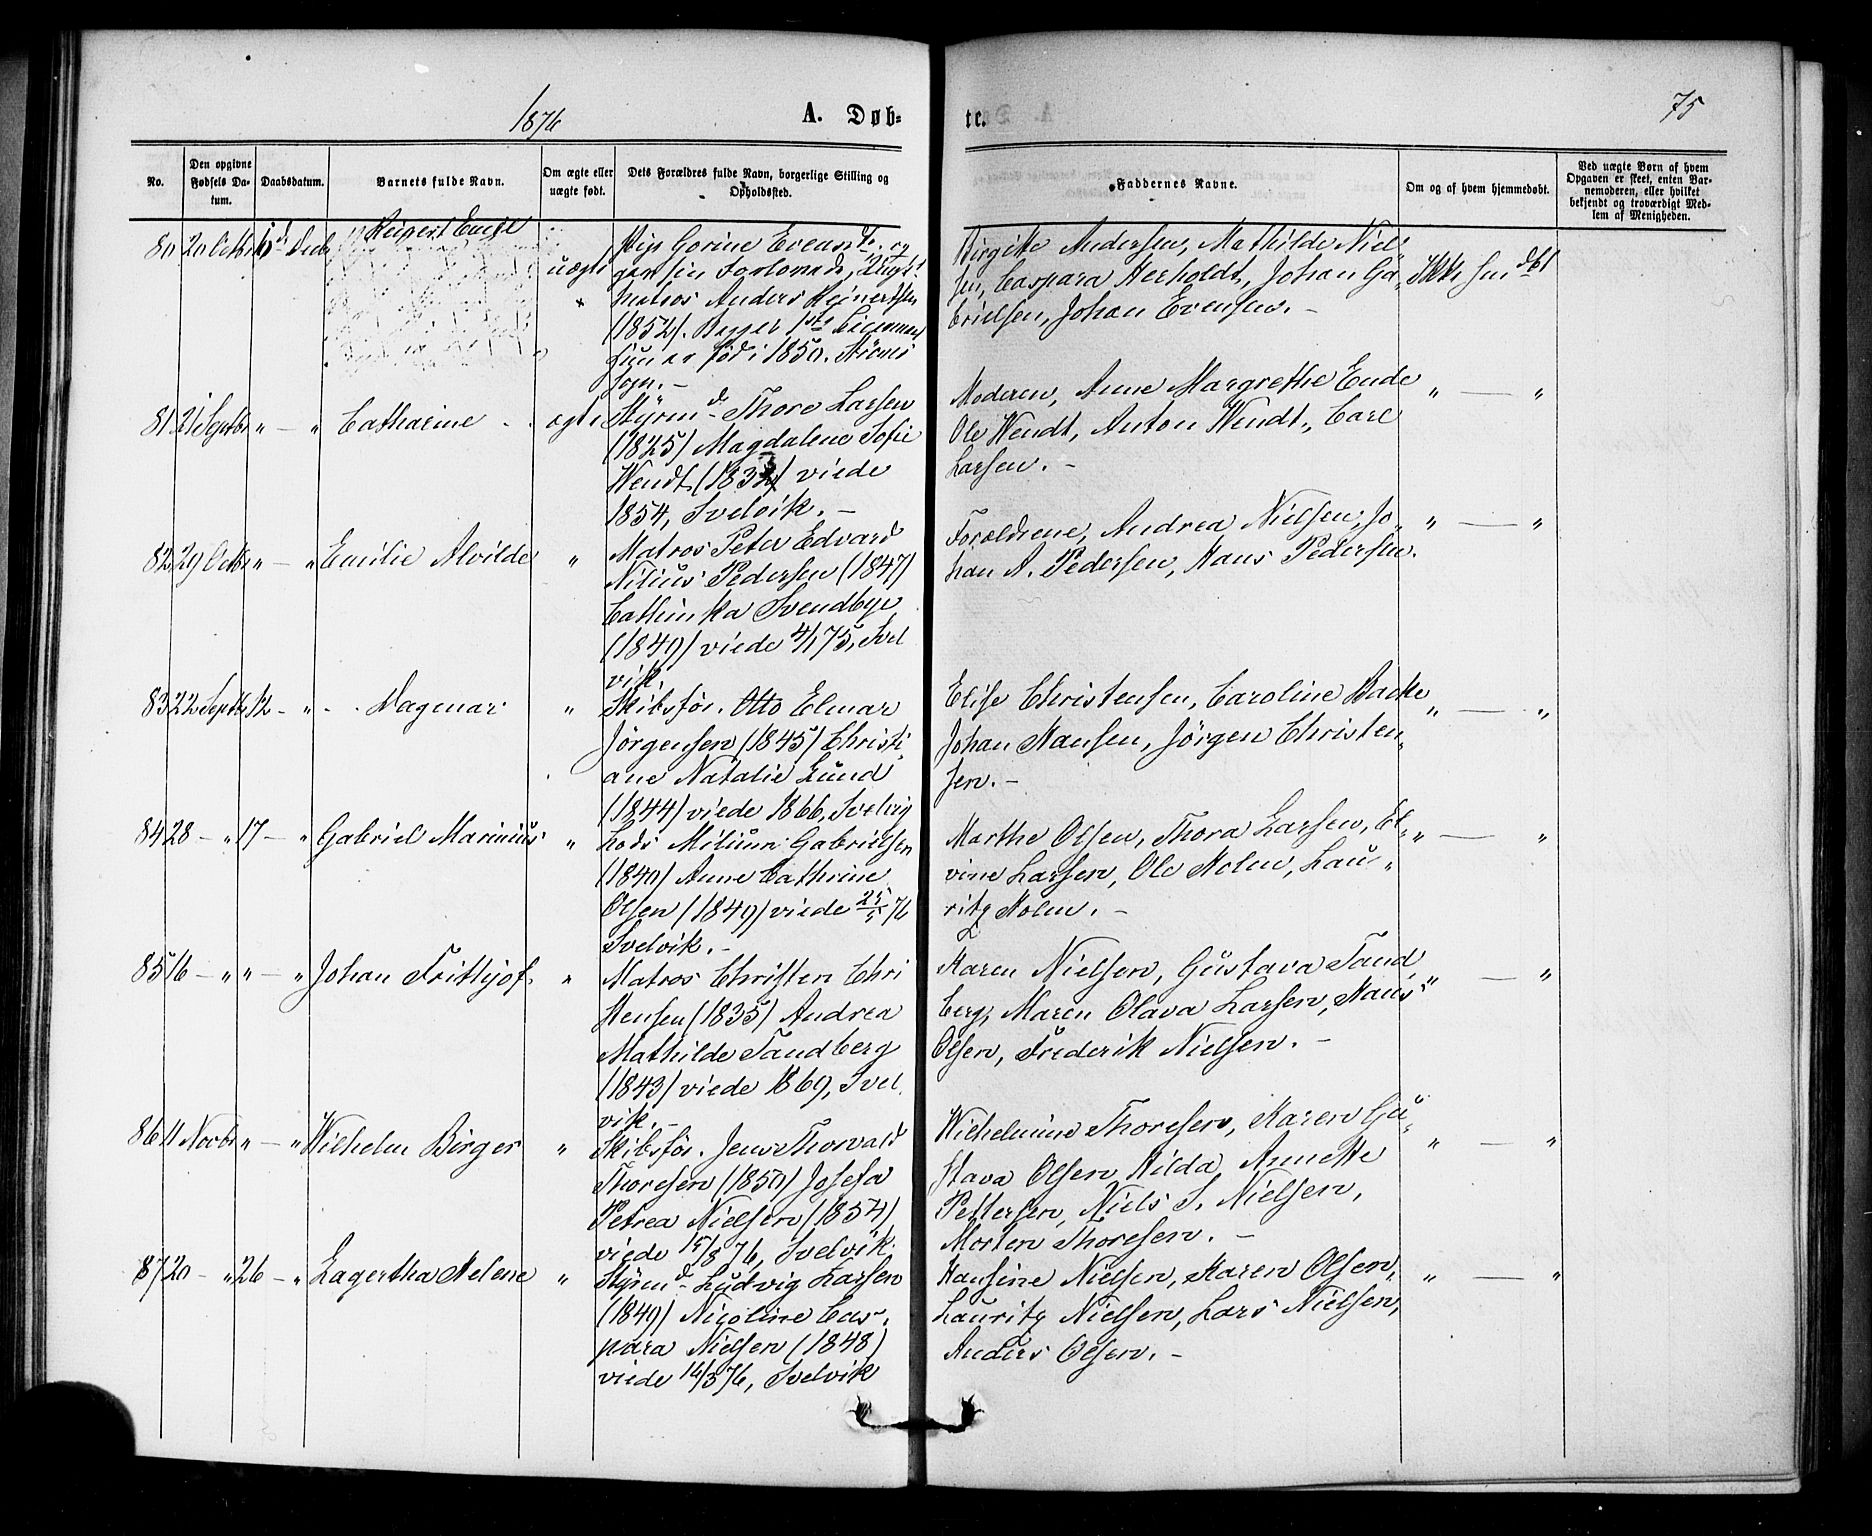 1876
A. Døb-
te.
75
No.
Den opgivne Fødsels Datum.
Daabsdatum.
Barnets fulde Navn.
Om ægte eller uægte født.
Dets Forældres fulde Navn, borgerlige Stilling og Opholdssted.
Faddernes Navne.
Om og af hvem hjemmedøbt.
Ved uægte Børn af hvem Opgaven er skeet, enten Barnemoderen, eller hvilket bekjendt og troværdigt Medlem af Menigheden.
80 20 Octbr
uægte
Pige Gorine Evens
Matros Anders Reinertsen
(1852).
født i 1850.
sogn. –
Birgitte Andersen, Mathilde Niel
sen, Caspara Herholdt, Johan Ga
brielsen, Johan Evensen. –
Ikke hm dbt
81 21 Septbr " — " Catharine ægte
Styrmd. Thore Larsen
(1825) Magdalene Sofie
Wendt viede
1854, Svelvik. –
Moderen, Anne Margrethe Ende
Ole Wendt, Anton Wendt, Carl
Larsen. –
" — "
82 29 Octbr " — " Emilie Alvilde "
Matros Peter Edvard
Nilius Pedersen (1847)
Cathinka Svendbye
(1849) viede 4/1 75, Svel
vik.
Forældrene, Andrea Nielsen, Jo
han A. Pedersen, Hans Pedersen.
" — "
83 22 Septbr 12 – " Dagmar "
Skibsfør. Otto Elmar
Jörgensen (1845) Christi
ane Natalie Lund
(1844) viede 1866, Svelvig
Elise Christensen, Caroline Backe
Johan Hansen, Jörgen Christen
sen. –
" — "
84 28 – " 17 – " Gabriel Marinius "
Lods Gabrielsen
(1840) Anne Cathrine
Olsen (1849) viede 76
Svelvik. –
Marthe Olsen, Thora Larsen, El
vine Larsen, Ole Holm, Lau
ritz Holm. –
" — "
85 16 – " " – " Johan Frithjof "
Matros Christen Chri
stensen (1835) Andrea
Mathilde Sandberg
(1843) viede 1869, Svel
vik. –
Karen Nielsen, Gustava Sand
berg, Maren Olava Larsen, Hans
Olsen, Frederik Nielsen. –
" — "
86 11 Novbr " – " Wilhelm Birger "
Skibsfør. Jens Thorvald
Thoresen (1850) Josefa
Petrea Nielsen (1854)
viede 15/8 76, Svelvik.
Wilhelmine Thoresen, Karen Gu
stava Olsen, Hilda Annette
Pettersen, Niels S. Nielsen,
Morten Thoresen. –
" — "
87 20 – " 26 – " Lagertha Helene "
Styrmd. Ludvig Larsen
(1849) Nicoline Cas
para Nielsen (1848)
viede 16/3 76, Svelvik
Hansine Nielsen, Karen Olsen,
Lauritz Nielsen, Lars Nielsen,
Anders Olsen. –
" — "